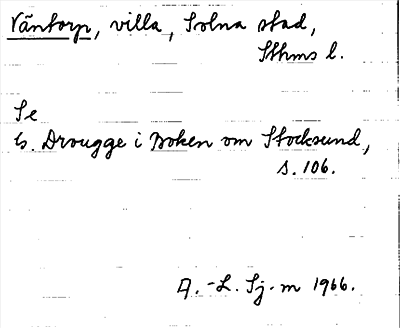 Väntorp, villa, Solna stad,
Sthms l.
Se
G. Drougge i Boken om Stocksund,
s. 106.
A.-L. Sj-m 1966.